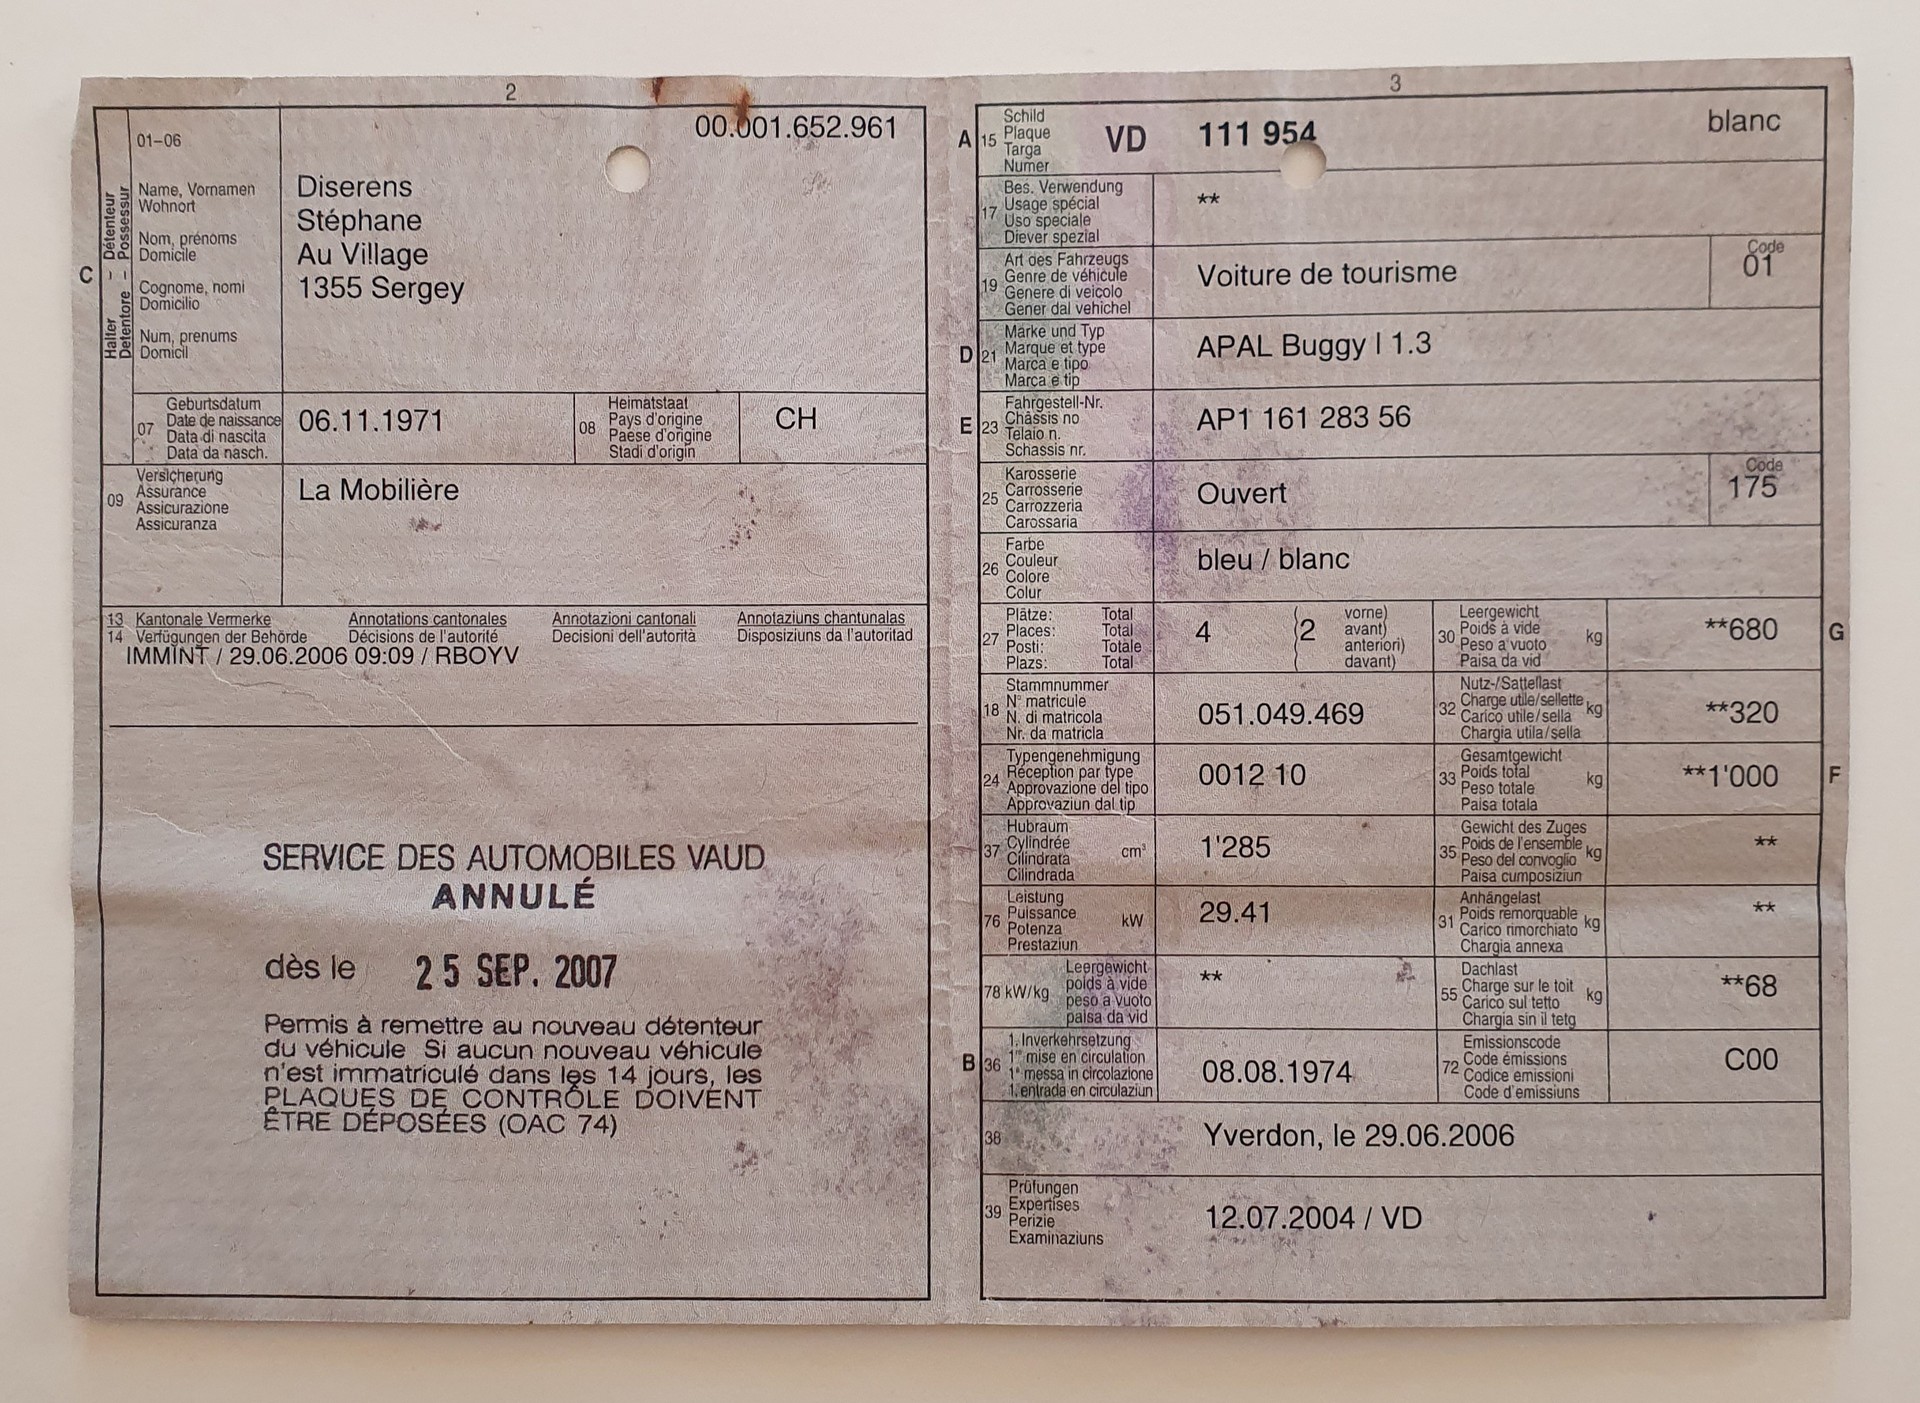 2
00.001.652.961
01–06
Name, Vornamen
Wohnort
Nom, prénoms
Domicile
Cognome, nomi
Domicilio
Num, prenums
Domicil
C
Halter – Détenteur
Detentore – Possessur
Diserens
Stéphane
Au Village
1355 Sergey
07
Geburtsdatum
Date de naissance
Data di nascita
Data da nasch.
06.11.1971
08
Heimatstaat
Pays d'origine
Paese d'origine
Stadi d'origin
CH
09
Versicherung
Assurance
Assicurazione
Assicuranza
La Mobilière
13 Kantonale Vermerke Annotations cantonales Annotazioni cantonali Annotaziuns chantunalas
14 Verfügungen der Behörde Décisions de l'autorité Decisioni dell'autorità Disposiziuns da l'autoritad
IMMINT / 29.06.2006 09:09 / RBOYV
SERVICE DES AUTOMOBILES VAUD
ANNULÉ
dès le 25 SEP. 2007
Permis à remettre au nouveau détenteur
du véhicule Si aucun nouveau véhicule
n'est immatriculé dans les 14 jours, les
PLAQUES DE CONTRÔLE DOIVENT
ÊTRE DÉPOSÉES (OAC 74)
3
A 15
Schild
Plaque
Targa
Numer
VD 111 954 blanc
17
Bes. Verwendung
Usage spécial
Uso speciale
Diever spezial
**
19
Art des Fahrzeugs
Genre de véhicule
Genere di veicolo
Gener dal vehichel
Voiture de tourisme
Code
01
D 21
Marke und Typ
Marque et type
Marca e tipo
Marca e tip
APAL Buggy I 1.3
E 23
Fahrgestell-Nr.
Châssis no
Telaio n.
Schassis nr.
AP1 161 283 56
25
Karosserie
Carrosserie
Carrozzeria
Carossaria
Ouvert
Code
175
26
Farbe
Couleur
Colore
Colur
bleu / blanc
27
Plätze: Total
Places: Total
Posti: Totale
Plazs: Total
4 (2
vorne)
avant)
anteriori)
davant)
30
Leergewicht
Poids à vide
Peso a vuoto
Paisa da vid
kg
**680
G
18
Stammnummer
N° matricule
N. di matricola
Nr. da matricla
051.049.469
32
Nutz-/Sattellast
Charge utile/sellette
Carico utile/sella
Chargia utila/sella
kg
**320
24
Typengenehmigung
Réception par type
Approvazione del tipo
Approvaziun dal tip
0012 10
33
Gesamtgewicht
Poids total
Peso totale
Paisa totala
kg
**1'000
F
37
Hubraum
Cylindrée
Cilindrata
Cilindrada
cm³
1'285
35
Gewicht des Zuges
Poids de l'ensemble
Peso del convoglio
Paisa cumposiziun
kg
**
76
Leistung
Puissance
Potenza
Prestaziun
kW
29.41
31
Anhängelast
Poids remorquable
Carico rimorchiato
Chargia annexa
kg
**
78 kW/kg
Leergewicht
poids à vide
peso a vuoto
paisa da vid
**
55
Dachlast
Charge sur le toit
Carico sul tetto
Chargia sin il tetg
kg
**68
B 36
1. Inverkehrsetzung
1re mise en circulation
1a messa in circolazione
1. entrada en circulaziun
08.08.1974
72
Emissionscode
Code émissions
Codice emissioni
Code d'emissiuns
C00
38
Yverdon, le 29.06.2006
39
Prüfungen
Expertises
Perizie
Examinaziuns
12.07.2004 / VD